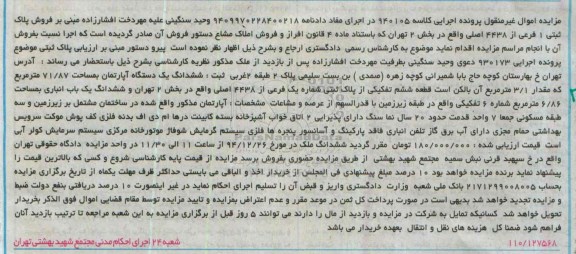 مزایده اموال غیرمنقول پرونده اجرایی کلاسه ۹۴۰۱۰۵ در اجرای مفاد دادنامه ۹۴۰۹۹۷۰۲۲۸۴۰۰۲۱۸ وحید سنگینی علیه مهردخت افشارزاده مبنی بر فروش پلاک
ثبتی ۱ فرعی از ۴۴۳۸ اصلی واقع در بخش ۲ تهران که باستناد ماده ۴ قانون افراز و فروش املاک مشاع دستور فروش آن صادر گردیده است که اجرا نسبت بفروش
آن با انجام مراسم مزایده اقدام نماید موضوع به کارشناس رسمی دادگستری ارجاع و بشرح ذیل اظهار نظر نموده است پیرو دستور مبنی بر ارزیابی پلاک ثبتی موضوع
پرونده اجرایی ۹۳۰۱۷۳ دعوی وحید سنگینی بطرفیت مهردخت افشارزاده پس از بازدید از ملک مذکور نظریه کارشناسی بشرح ذیل باستحضار می رساند : آدرس
تهران خ بهارستان کوچه حاج بابا شمیرانی کوچه زهره (صمدی ) بن بست سلیمی پلاک ۲ طبقه ۲غربی ثبت : ششدانگ یک دستگاه آپارتمان بمساحت ۷۱/۸۷ مترمربع
که مقدار ۳/۱ مترمربع آن بالکن است قطعه ششم تفکیکی از پلاک ثبتی شماره یک فرعی از ۴۴۳۸ اصلی واقع در بخش ۲ تهران و ششدانگ یک باب انباری بمساحت
۶/۸۶ مترمربع شماره ۶ تفکیکی واقع در طبقه زیرزمین با قدرالسهم از عرصه و مشاعات مشخصات : آپارتمان مذکور واقع شده در ساختمان مشتمل بر زیرزمین و سه
طبقه مسکونی جمعا ۷ واحد قدمت حدود ۲۰ سال نما سنگ دارای پذیرایی ۲ اتاق خواب آشپزخانه بسته کابینت درها ام دی اف بدنه فلزی کف پوش موکت سرویس
بهداشتی حمام مجزی دارای آب برق گاز تلفن انباری فاقد پارکینگ و آسانسور پنجره ها فلزی سیستم گرمایش شوفاژ موتورخانه مرکزی سیستم سرمایش کولر آبی
است قیمت ارزیابی شده : ۱۸۰/۰۰۰/۰۰۰ تومان مقرر گردید ششدانگ ملک در مورخ ۹۴/۱۲/۲۶ از ساعت ۱۱ الی ۱۱/۳۰ در واحد مزایده دادگاه حقوقی تهران
واقع در خ سپهبد قرنی نبش سمیه مجتمع شهید بهشتی از طریق مزایده حضوری بفروش برسد مزایده از قیمت پایه کارشناسی شروع و کسی که بالاترین قیمت را
پیشنهاد نماید برنده مزایده خواهد بود ۱۰ درصد مبلغ پیشنهادی فی المجلس از خریدار اخذ و الباقی می بایستی حداکثر ظرف مهلت یکماه از تاریخ برگزاری مزایده
بحساب ۲۱۷۱۲۹۹۰۰۸۰۰۵ بانک ملی شعبه وزارت دادگستری واریز و قبض آن را تسلیم اجرای احکام نماید در غیر اینصورت ۱۰ درصد دریافتی بنفع دولت ضبط
و مزایده تجدید خواهد شد بدیهی است در صورت پرداخت کل ثمن در موعد مقرر و عدم اعتراض بمزایده و تایید مزایده توسط مقام قضایی اموال فوق الذکر بخریدار
تحویل خواهد شد کسانیکه تمایل به شرکت در مزایده و بازدید از مال را دارند می توانند ۵ روز قبل از برگزاری مزایده به این شعبه مراجعه تا ترتیب بازدید آنان
فراهم شود ضمنا کل هزینه های نقل و انتقال بعهده خریدار می باشد
۱۱۰/۱۲۷۵۶۸ شعبه ۲۴ اجرای احکام مدنی مجتمع شهید بهشتی تهران